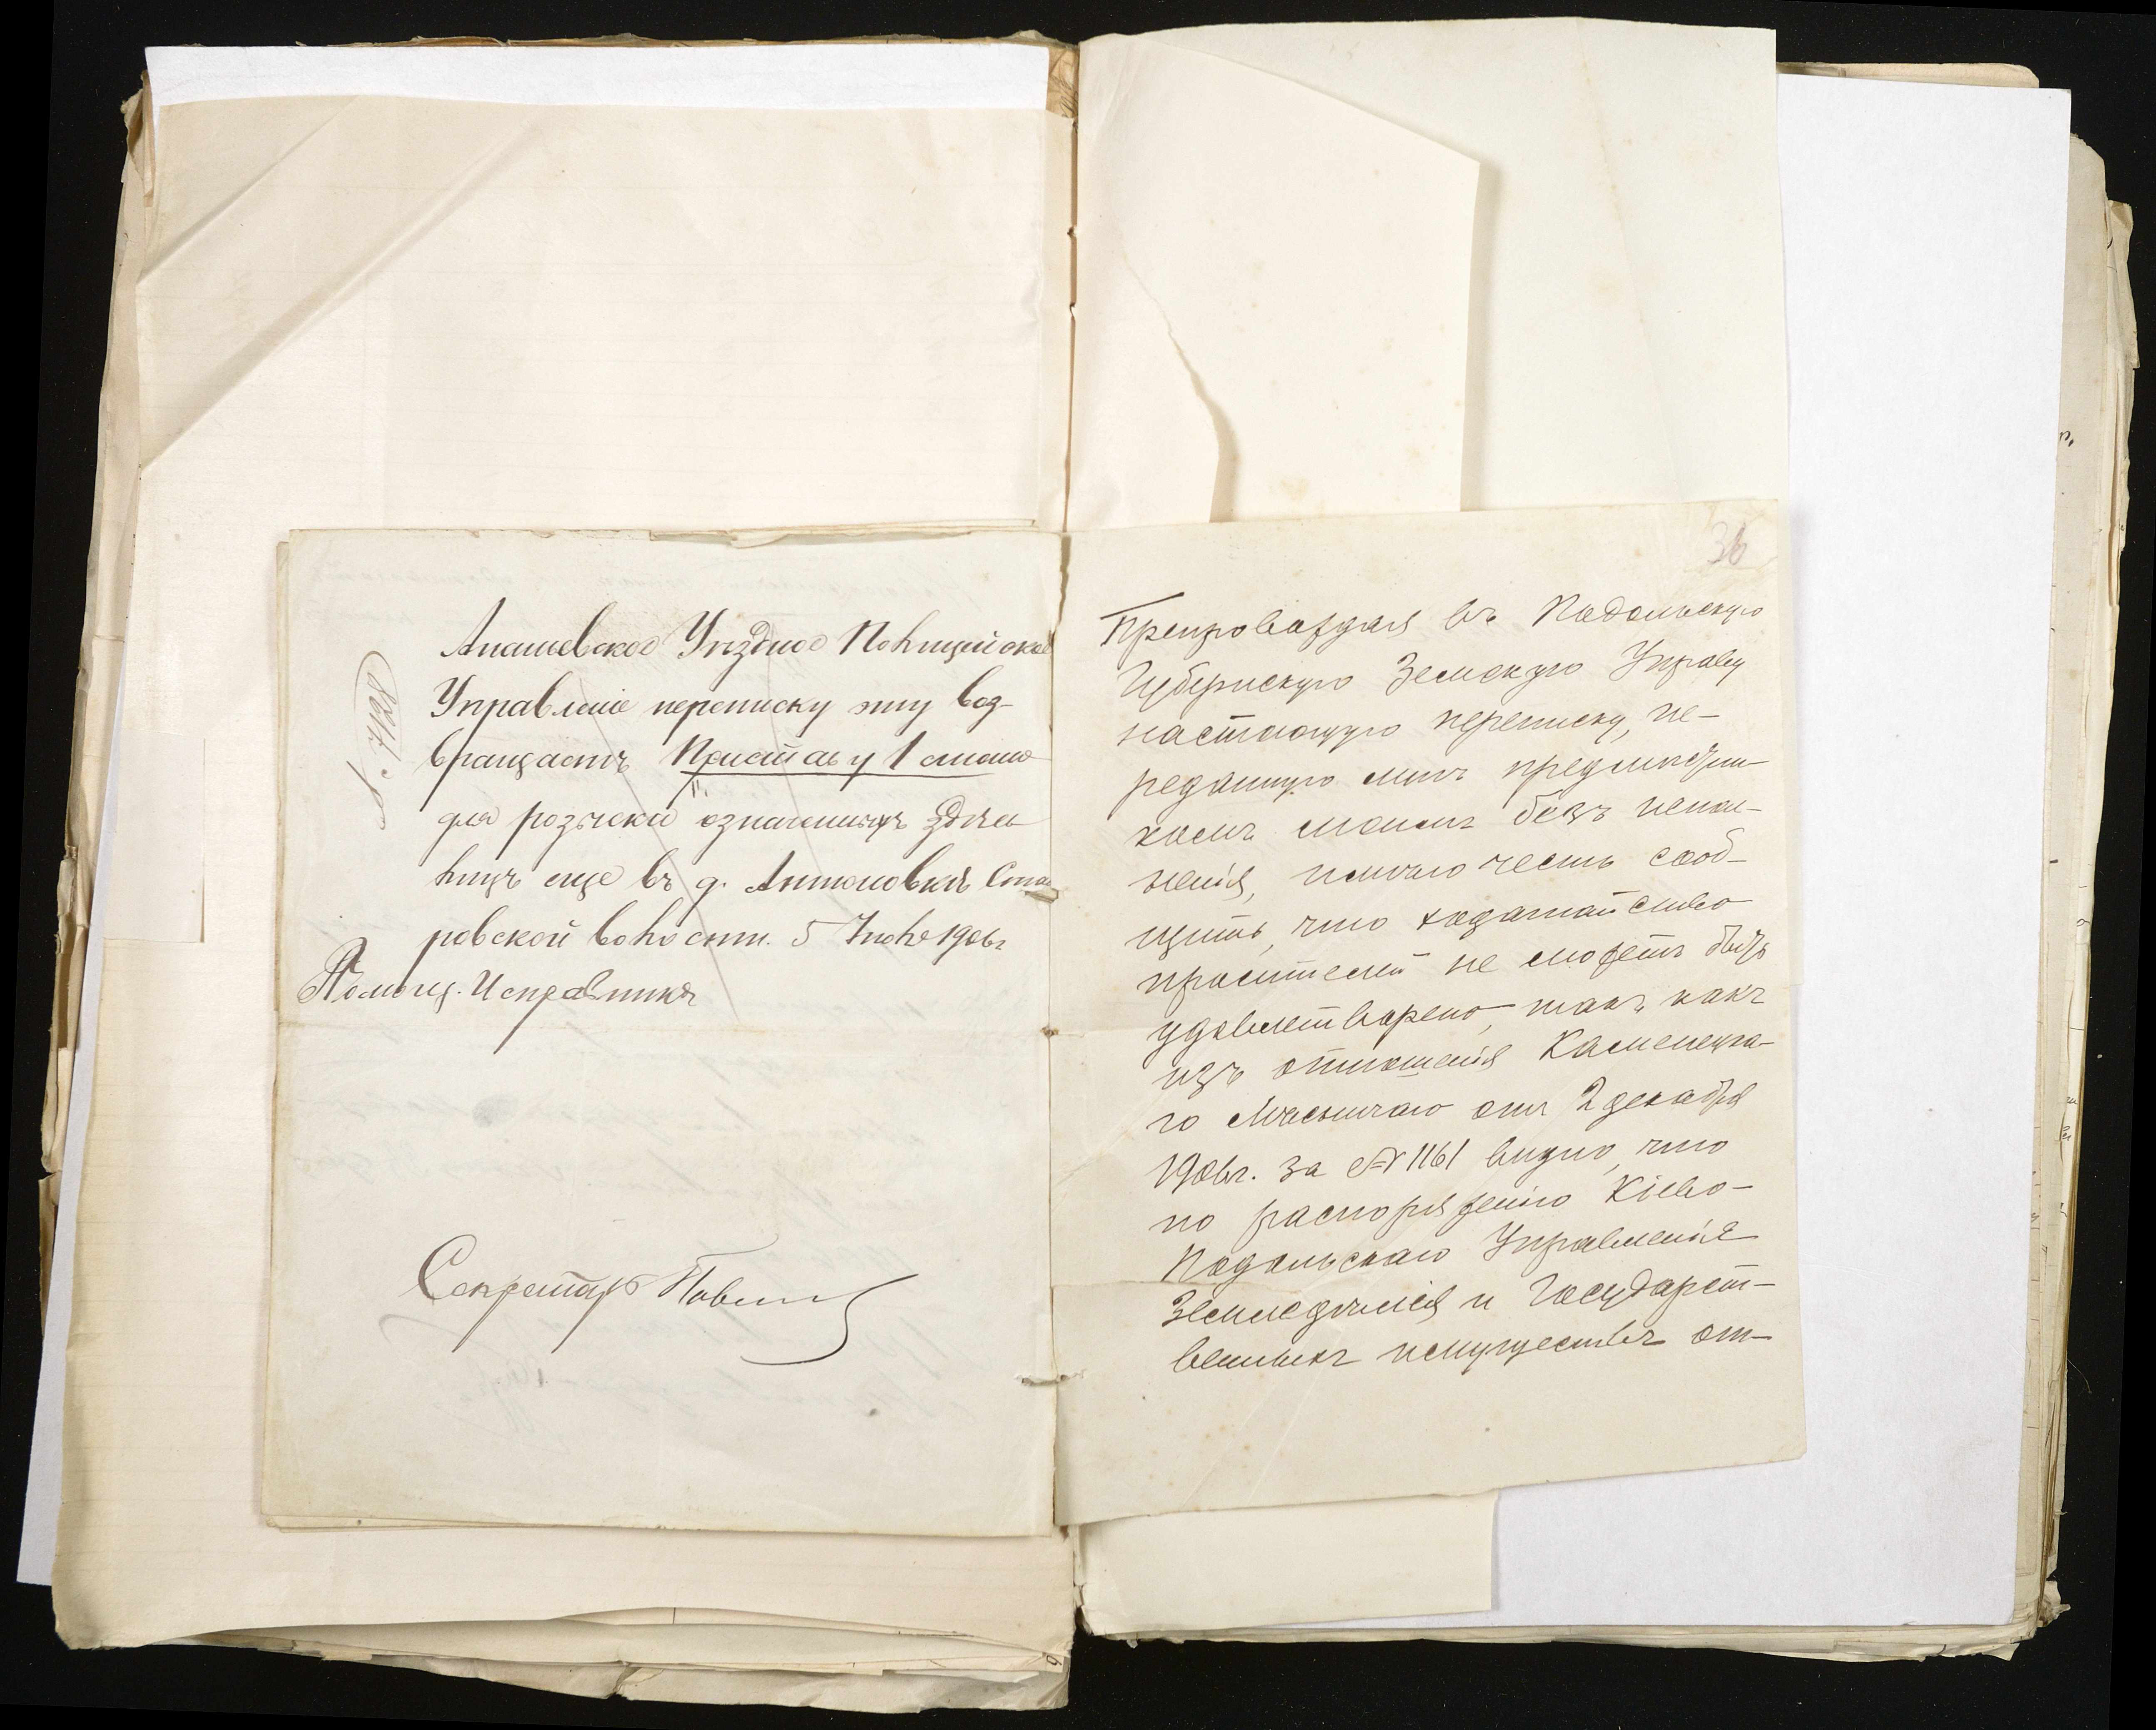 № 7128
Ананьевское Уѣздное Полицейское
Управленіе переписку эту воз-
вращаетъ Приставу 1 стана
для розыска означенныхъ здѣсь
лицъ еще въ д. Антоновкѣ
ровской волости. 5 Іюля 1906 г
Помощ. Исправника
Секретарь
36
Препровождая въ Подольскую
Губернскую Земскую Управу
настоящую переписку, пе-
реданную мнѣ предмѣстни-
комъ моимъ безъ испол-
ненія, имѣю честь сооб-
щить, что ходатайство
просителей не можетъ быть
удовлетворено, такъ какъ
изъ отношенія Каменецка-
го Лѣсничаго отъ 2 декабря
1906 г. за № 1161 видно, что
по распоряженію Кіево-
Подольскаго Управленія
Земледѣлія и Государст-
венныхъ имуществъ от-